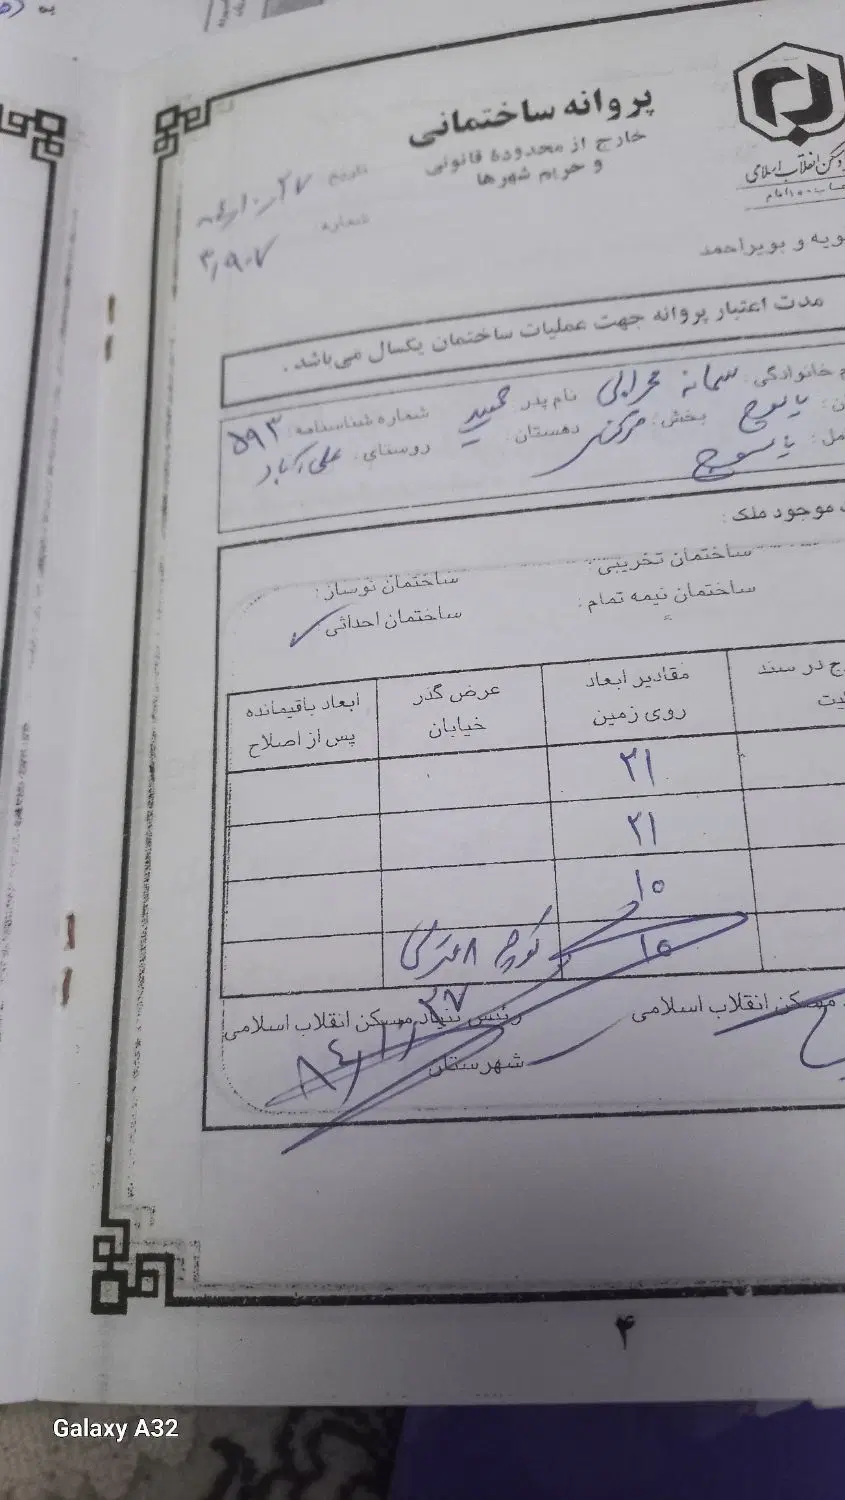 پروانه ساختمانی
خارج از محدوده قانونی
و حریم شهرها
مسکن انقلاب اسلامی
حساب ۱۰۰ امام
تاریخ
شماره:
۳،۹۰۷
ویه و بویراحمد
مدت اعتبار پروانه جهت عملیات ساختمان یکسال می‌باشد.
خانوادگی: سمانه محرابی نام پدر: حمید شماره شناسنامه: ۵۹۳
ن: یاسوج بخش: مرکزی دهستان: روستای: علی آباد
مل: یاسوج
موجود ملک:
ساختمان تخریبی: ساختمان نوساز:
ساختمان نیمه تمام: ساختمان احداثی ✓
ج در سند مقادیر ابعاد عرض گذر ابعاد باقیمانده
روی زمین خیابان پس از اصلاح
۲۱
۲۱
۱۰
۱۰ کوچه ۸ متری
مسکن انقلاب اسلامی رئیس بنیاد مسکن انقلاب اسلامی
شهرستان
۴
Galaxy A32